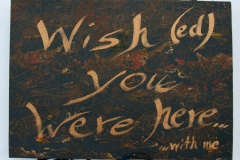 Wish (ed)
you
Were here...
...with me